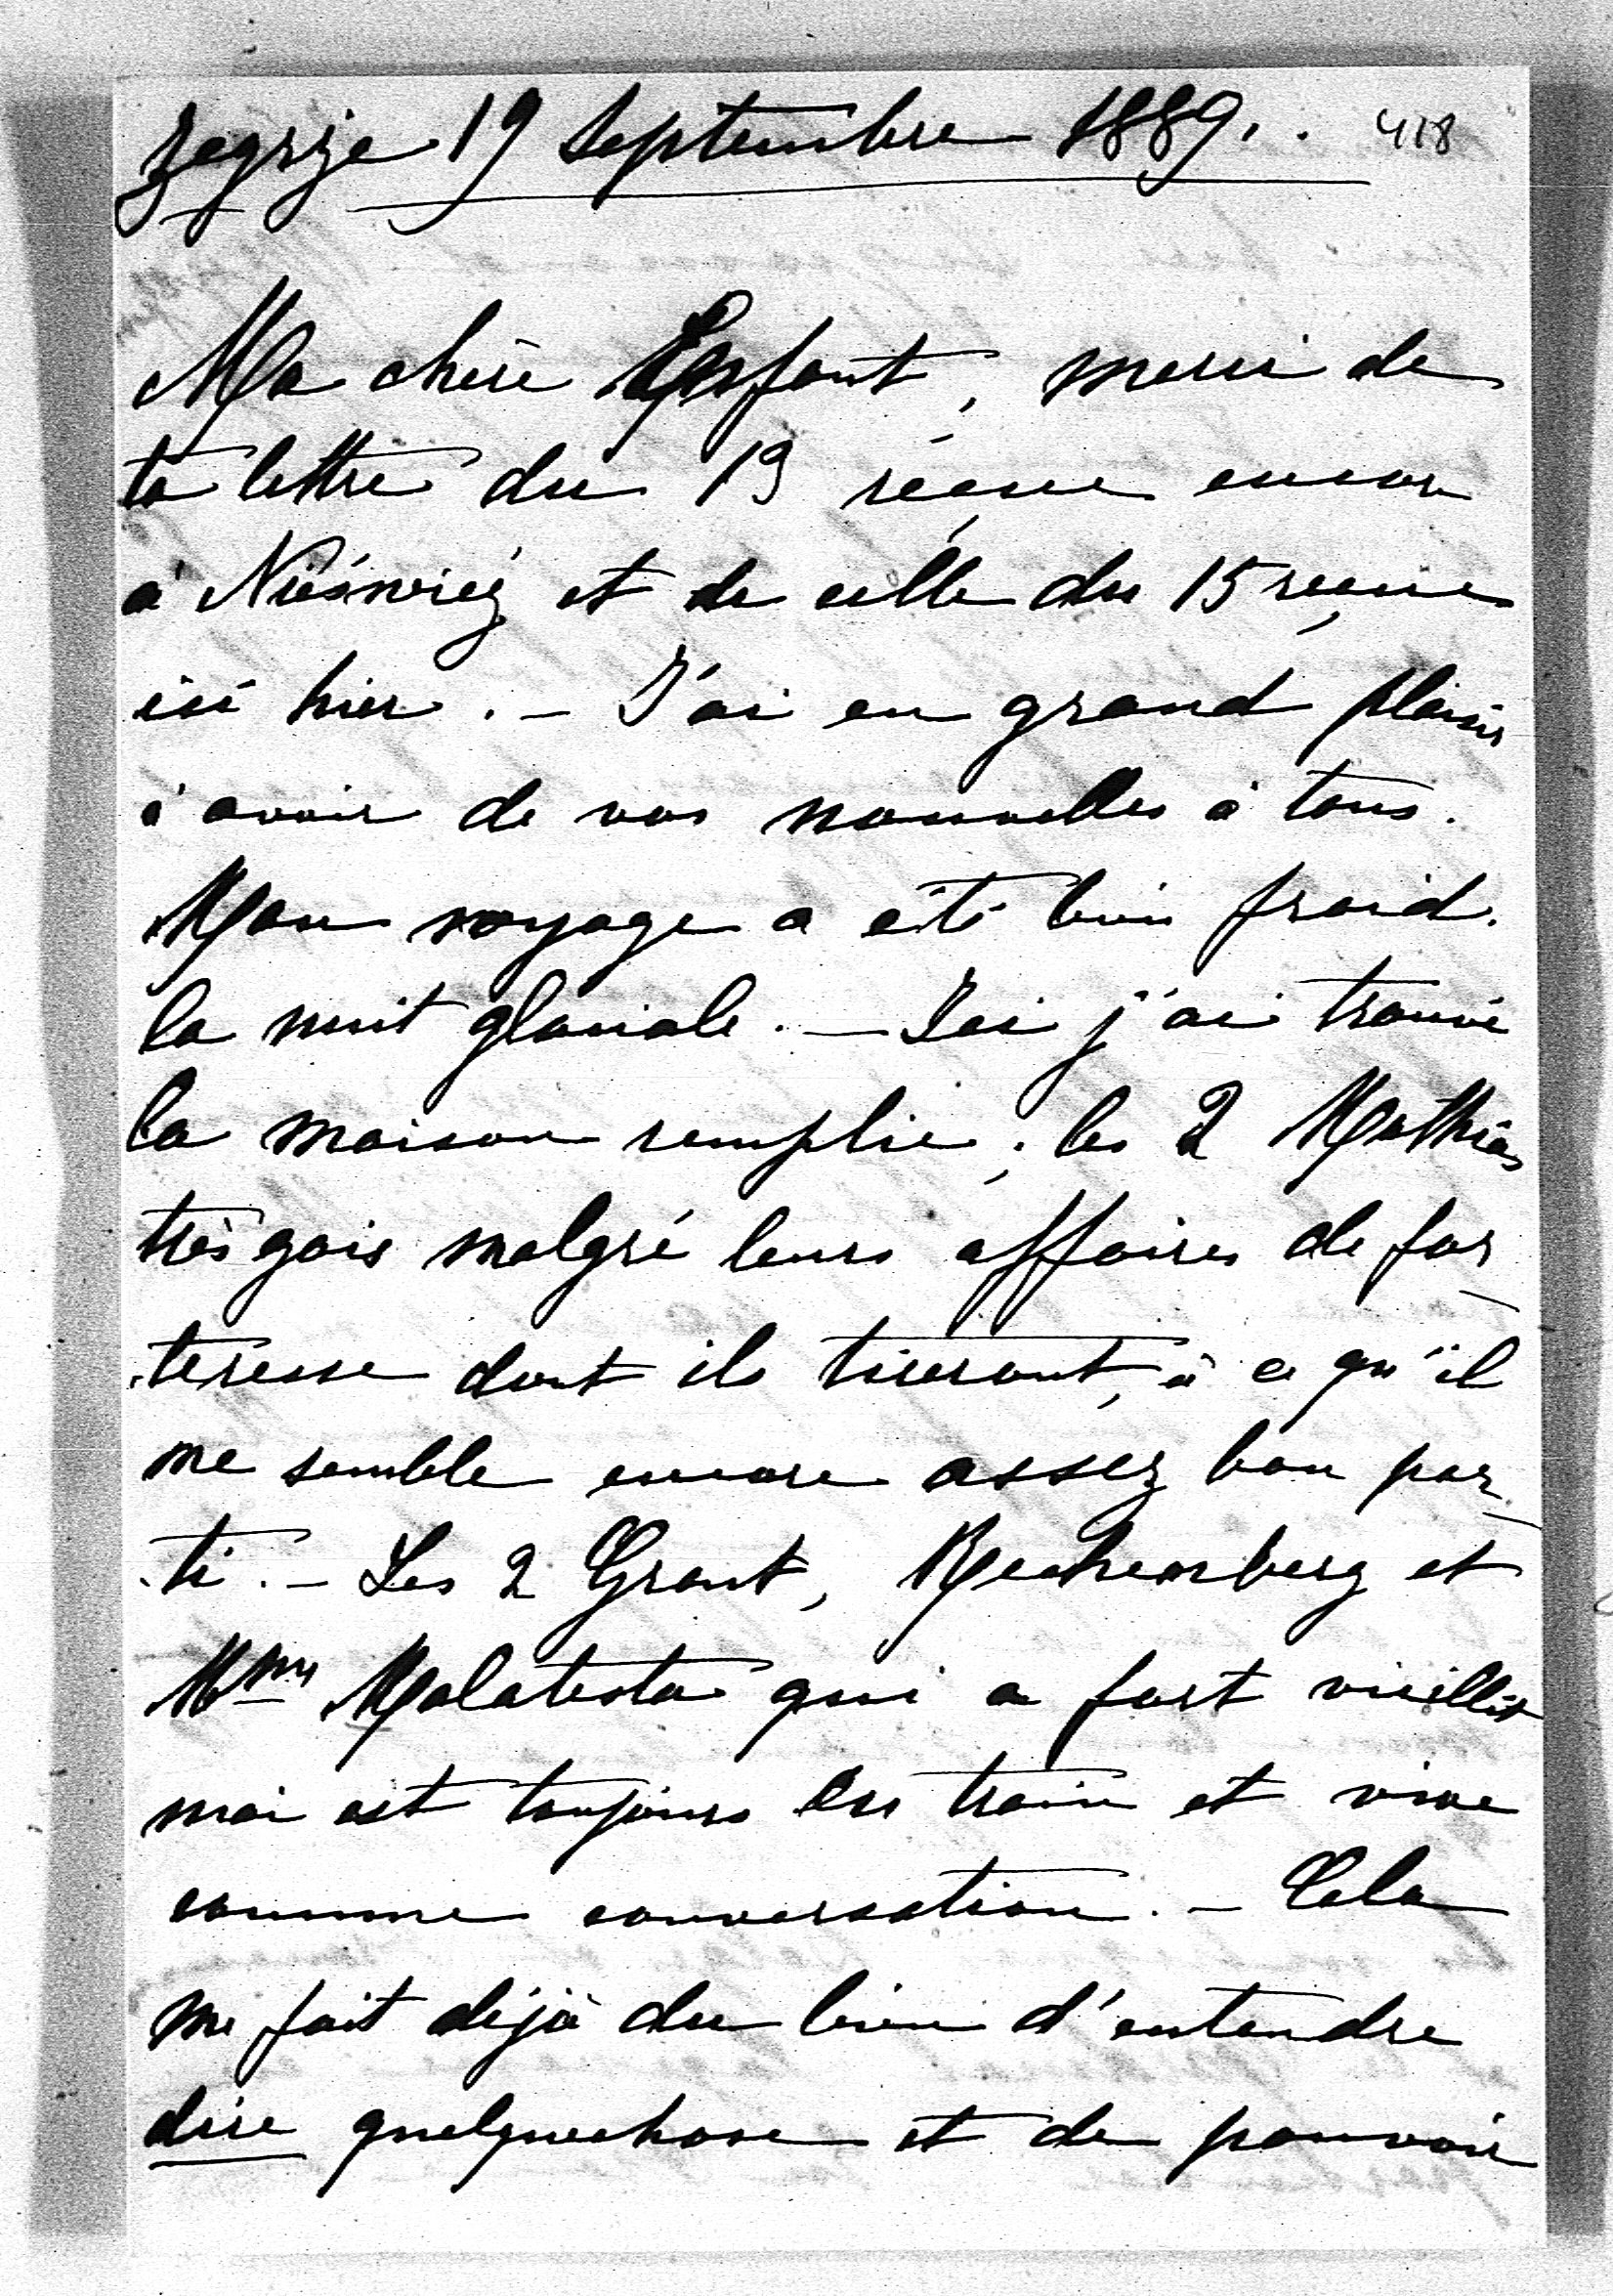 Zegrze 19 Septembre 1889. 418
Ma chère Enfant, merci de
ta lettre du 13 reçue encore
à Nieśwież et de celle du 15 reçue
ici hier. – J'ai eu grand plaisir
à avoir de vos nouvelles à tous.
Mon voyage a été bien froid.
la nuit glaciale. – Ici j'ai trouvé
la maison remplie; les 2 Mathias
très gais malgré leurs affaires de for
-teresse dont ils tireront, à ce qu'il
me semble encore assez bon par
-ti. – Les 2 Grant, Rechenberg et
Mme Malatesta qui a fort vieillit
mai est toujours en train et vive
comme conversation. – Cela
me fait déjà du bien d'entendre
dire quelquechose et de pouvoir